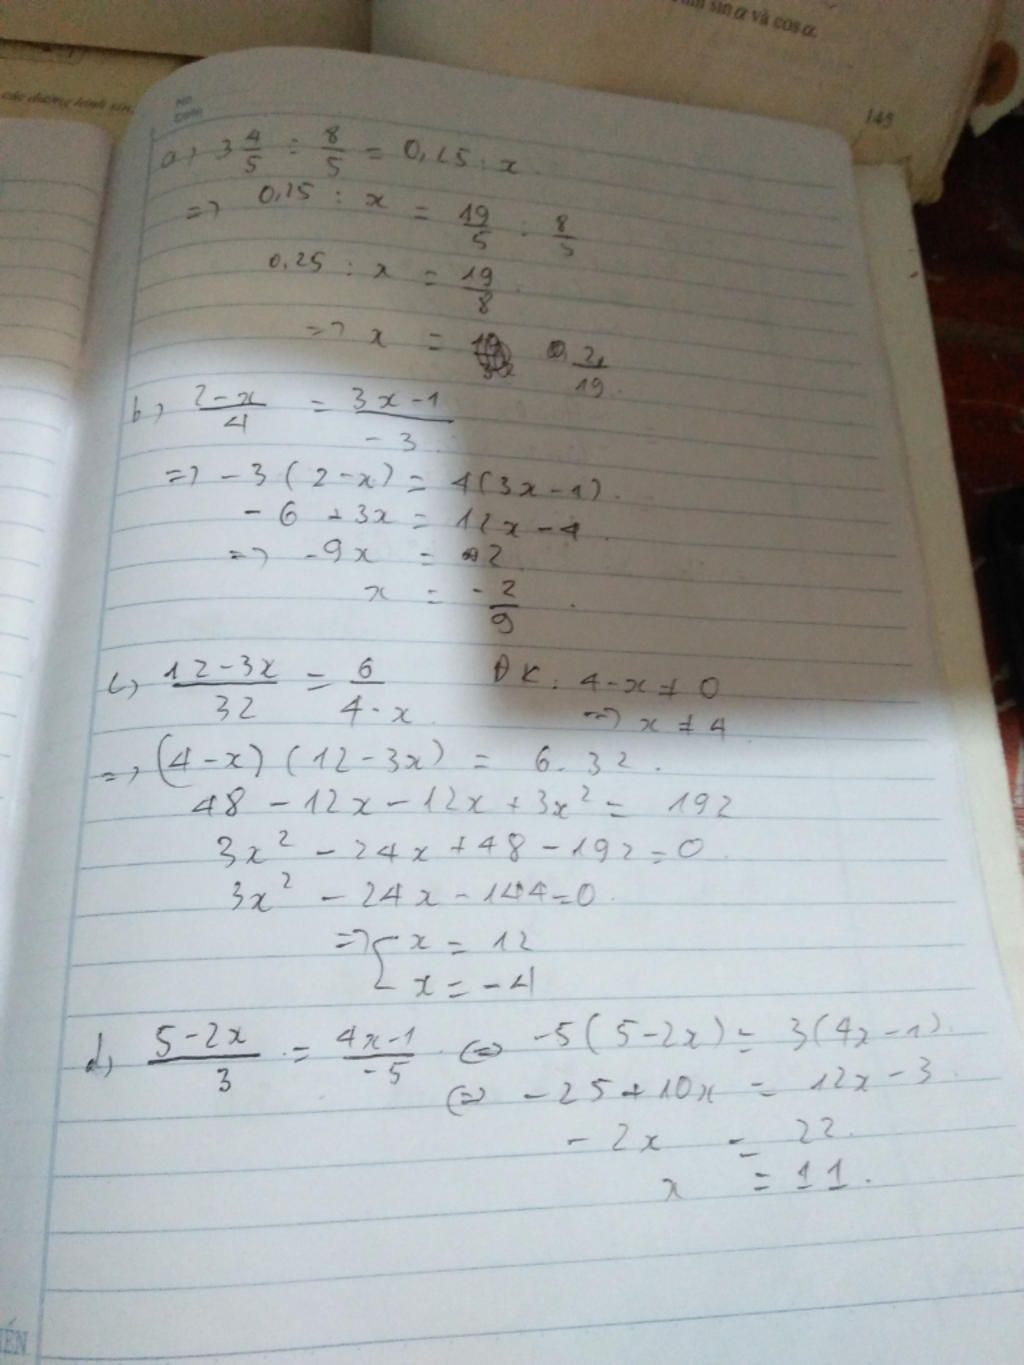 sin α và cos α.
145
các đường hình sin.
a, 3 4/5 : 8/5 = 0,25 : x.
=> 0,25 : x = 19/5 : 8/5
0,25 : x = 19/8
=> x = 2/19.
b, (2-x)/4 = (3x-1)/-3
=> -3(2-x) = 4(3x-1).
-6 + 3x = 12x - 4
=> -9x = 2
x = -2/9.
c, (12-3x)/32 = 6/(4-x) ĐK: 4-x ≠ 0
=> x ≠ 4
=> (4-x)(12-3x) = 6.32.
48 - 12x - 12x + 3x² = 192
3x² - 24x + 48 - 192 = 0
3x² - 24x - 144 = 0.
=> [ x = 12
x = -4
d, (5-2x)/3 = (4x-1)/-5 <=> -5(5-2x) = 3(4x-1).
<=> -25 + 10x = 12x - 3.
-2x = 22.
x = 11.